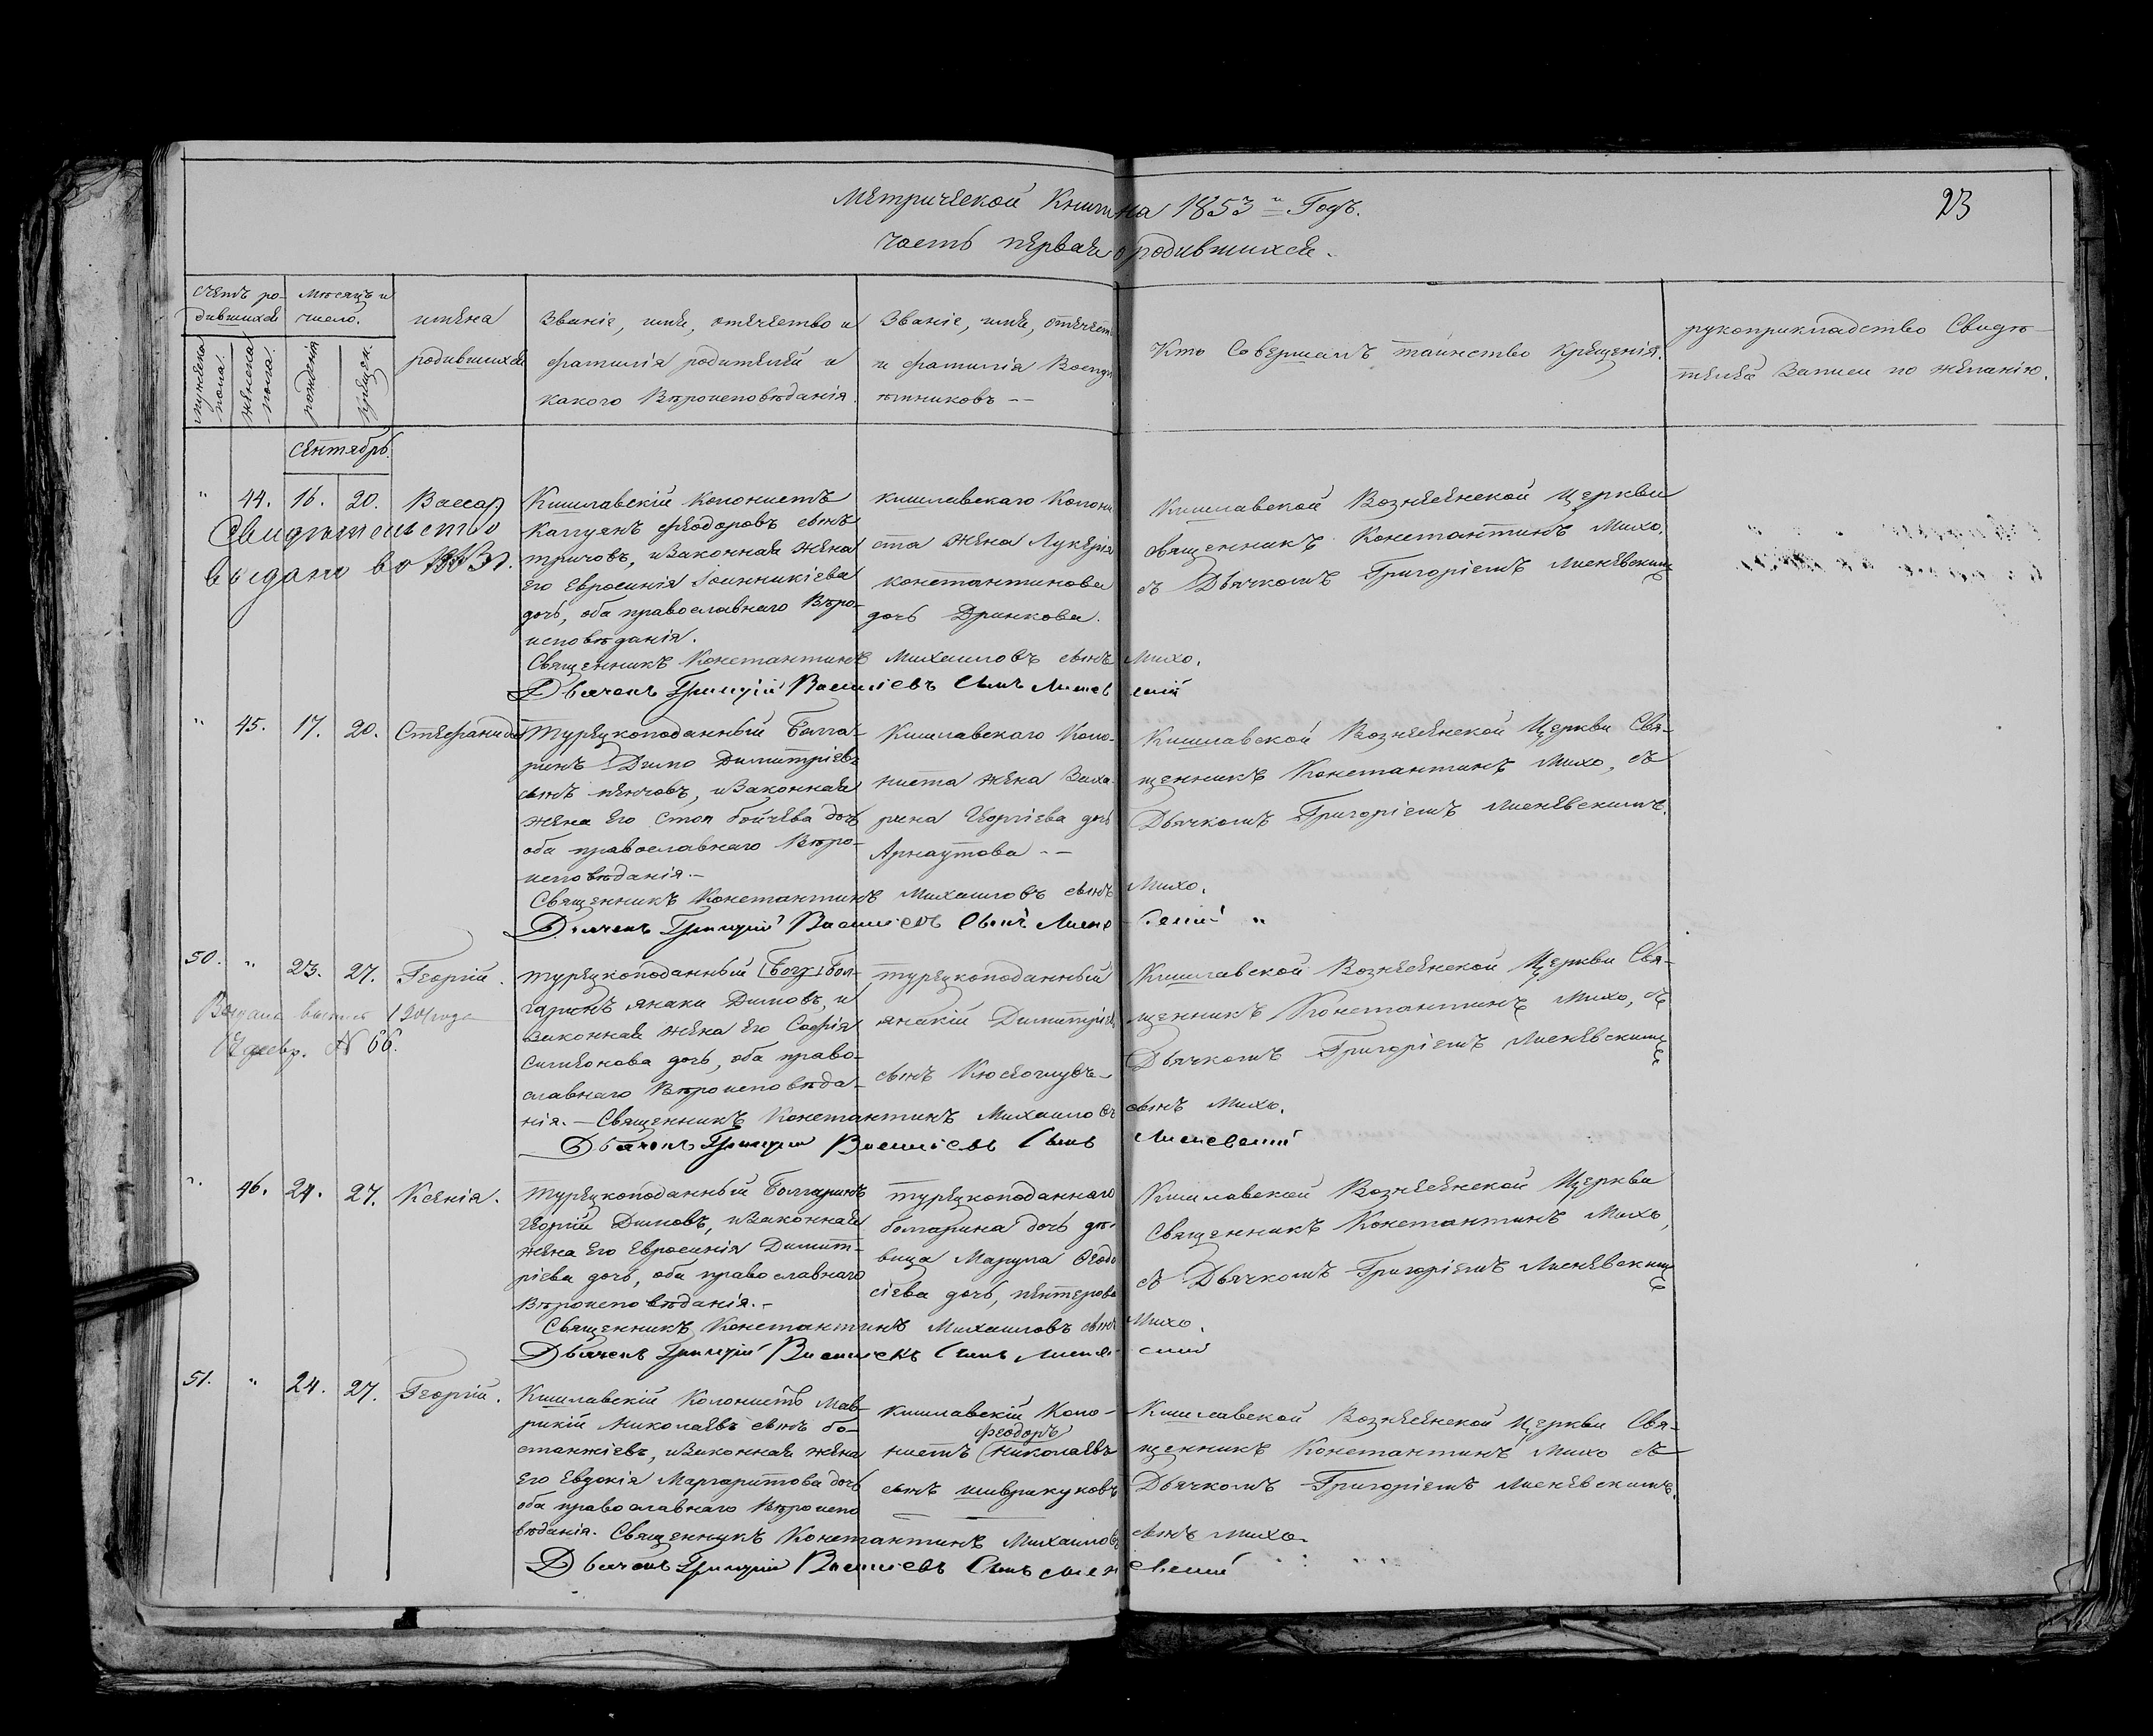 Метрической Книги на 1853й Годъ.
23
часть первая о родившихся.
Счетъ родившихся
мужеска пола.
женска пола.
Мѣсяцъ и число.
рожденія
крещен.
имена родившихся
Званіе, имя, отечество и фамилія родителей и какого Вѣроисповѣданія.
Званіе, имя, отечест. и фамилія Воспріемниковъ --
Кто Совершалъ таинство крещенія.
рукоприкладство Свидѣтелей Записи по желанію.
Сентябрь.
" 44. 16. 20. Васса
Свидѣтельство
выдано въ
Кишлавскій колонистъ
Феодоровъ сынъ
тричовъ, и Законная жена
его Евросинія Іоанникіева
дочь, оба православнаго Вѣро-
исповѣданія.
кишлавскаго Колони
ста жена Лукерія
константинова
дочь Дринкова.
Кишлавской Вознесенской церкви
священникъ Константинъ Михо,
съ Дьячкомъ Григоріемъ Лисневскимъ
Священникъ Константинъ Михаиловъ сынъ Михо.
Дьячекъ Григорій Василіевъ Сынъ Лисневскій
" 45. 17. 20. Стефанида
Турецкоподанный Болга-
ринъ Димо Димитріевъ
сынъ пенчовъ, и Законная
жена его Стоя бойчева дочь
оба православнаго Вѣро-
исповѣданія.-
Кишлавскаго Коло-
ниста жена Заха-
рина Георгіева дочь
Арнаутова --
Кишлавской Вознесенской Церкви Свя-
щенникъ Константинъ Михо, съ
Дьячкомъ Григоріемъ Лисневскимъ.
Священникъ Константинъ Михаиловъ сынъ Михо.
Дьячекъ Григорій Василіевъ Сынъ Лисневскій "
50. " 23. 27. Георгій.
Выдана выпись 1901 года
февр. № 66.
турецкоподанный Бол-
гаринъ янаки Димовъ, и
законная жена его Софія
Симеонова дочь, оба право-
славнаго Вѣроисповѣда-
нія. - Священникъ Константинъ Михаиловъ сынъ Михо.
турецкоподанный
янакій Димитріев
сынъ Кюсеоглувъ-
Кишлавской Вознесенской Церкви Свя-
щенникъ Константинъ Михо, съ
Дьячкомъ Григоріемъ Лисневскимъ
Дьячекъ Григорій Василіевъ Сынъ Лисневскій
" 46. 24. 27. Ксенія.
турецкоподанный Болгаринъ
Георгій Димовъ, и Законная
жена его Евросинія Димит-
ріева дочь, оба православнаго
Вѣроисповѣданія.-
турецкоподаннаго
болгарина дочь дѣ-
вица Марула Феодо
сіева дочь, пентерова
Кишлавской Вознесенской Церкви
Священникъ Константинъ Михо,
съ Дьячкомъ Григоріемъ Лисневскимъ
Священникъ Константинъ Михаиловъ сынъ Михо.
Дьячекъ Григорій Василіевъ Сынъ Лисневскій
51. " 24. 27. Георгій.
Кишлавскій Колонистъ Мав-
рикій Николаевъ сынъ бо-
станжіевъ, и Законная жена
его Евдокія Маргаритова дочь
оба православнаго Вѣроиспо
вѣданія. Священникъ Константинъ Михаиловъ сынъ Михо.
кишлавскій Коло-
Феодоръ
нистъ Николаевъ
сынъ шиврикуковъ
Кишлавской Вознесенской церкви Свя-
щенникъ Константинъ Михо съ
Дьячкомъ Григоріемъ Лисневскимъ.
Дьячекъ Григорій Василіевъ Сынъ Лисневскій